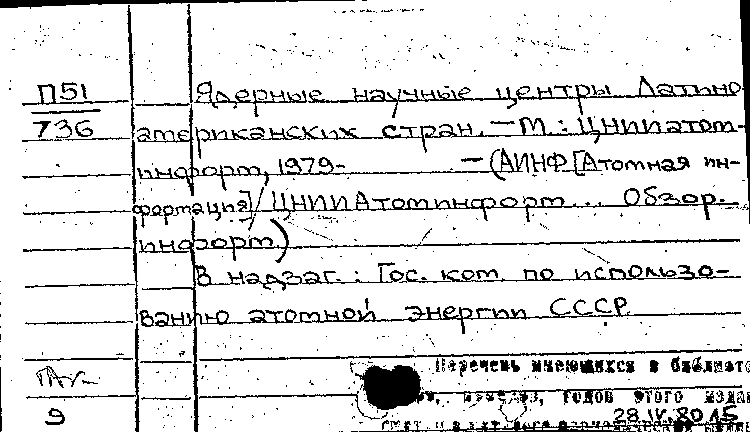 П51
736
Ядерные научные центры Латино-
американских стран. — М.: ЦНИИатом-
информ, 1979-          — (АИНФ [Атомная ин-
формация] / ЦНИИАтоминформ... Обзор.
информ.)
В надзаг.: Гос. ком. по использо-
ванию атомной энергии СССР
Перечень имеющихся в библиот
годов этого издан
9
28.IV.80